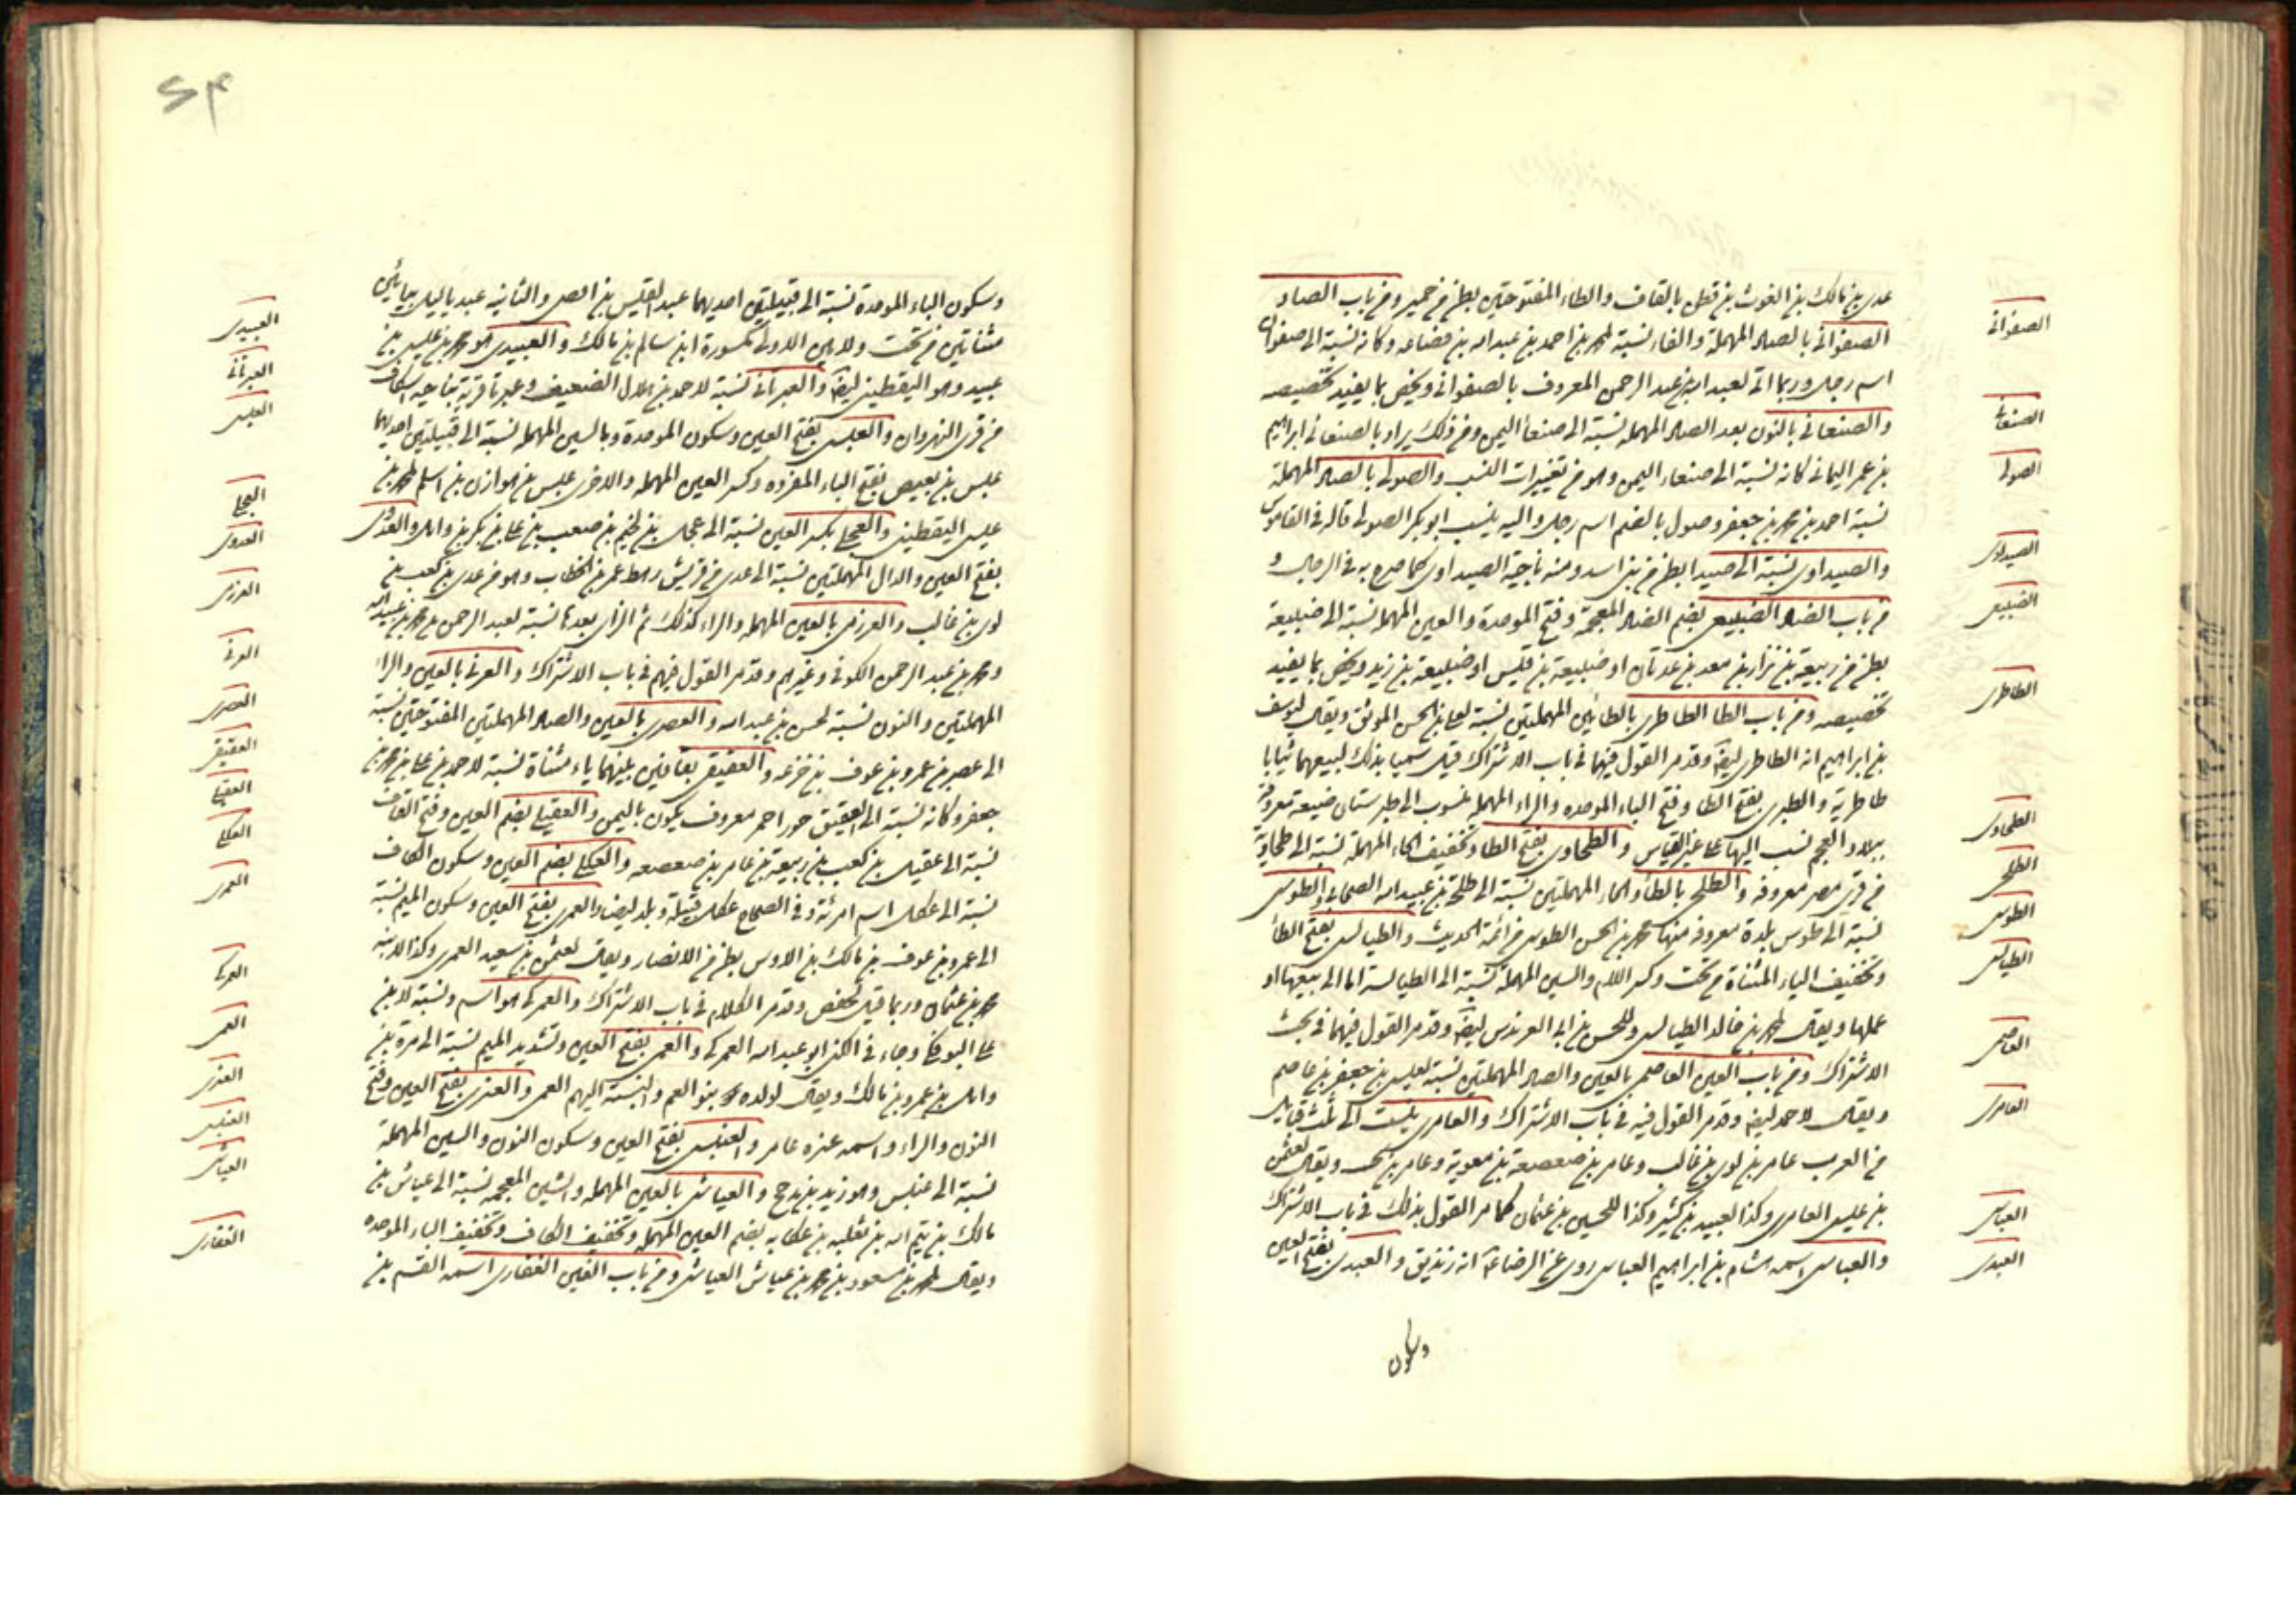 عدي بن مالك بن الغوث بن قطن بالقاف والطاء المفتوحتين بطن من حمير ومن باب الصاد
الصفواني بالصاد المهملة والفاء نسبة لمحمد بن احمد بن عبد الله بن قضاعه وكانه نسبة الى صفوان
اسم رجل وربما اتى لعبد الله بن عبد الرحمن المعروف بالصفواني ويخص بما يفيد تخصيصه
والصنعاني بالنون بعد الصاد المهمله نسبة الى صنعا اليمن ومن ذلك يراد بالصنعاني ابراهيم
بن عمر اليماني كانه نسبة الى صنعاء اليمن وهو من تغييرات النسب والصولي بالصاد المهملة
نسبة احمد بن محمد بن جعفر وصول بالضم اسم رجل واليه ينسب ابو بكر الصولي قاله في القاموس
والصيداوي نسبة الى صيدا بطن من بني اسد ومنه ناجية الصيداوي كما صرح به في الرجال و
من باب الضاد الضبيعي بضم الضاد المعجمة وفتح الموحدة والعين المهملة نسبة الى ضبيعة
بطن من ربيعة بن نزار بن معد بن عدنان او ضبيعة بن قيس او ضبيعة بن زيد ويخص بما يفيد
تخصيصه ومن باب الطا الطاطري بالطائين المهملتين نسبة لعلي بن الحسن الموثق ويقال ليوسف
بن ابراهيم انه الطاطري ايضا وقد مر القول فيهما في باب الاشتراك قيل سميا بذلك لبيعهما ثيابا
طاطرية والطبري بفتح الطا وفتح الباء الموحده والراء المهملة منسوب الى طبرستان ضيعة معروفة
ببلاد العجم نسب اليها على غير القياس والطحاوي بفتح الطا وتخفيف الحاء المهملة نسبة الى طحاوية
من قرى مصر معروفه والطلحي بالطاء والحاء المهملتين نسبة الى طلحة بن عبيد الله الصحابي والطوسي
نسبة الى طوس بلدة معروفه منها محمد بن الحسن الطوسي من ائمة الحديث والطيالسي بفتح الطأ
وتخفيف الياء المثناة من تحت وكسر اللام والسين المهملة نسبة الى الطيالسه اما الى بيعها او
عملها ويقال لمحمد بن خالد الطيالسي وللحسن بن ابي العرندس ايضا وقد مر القول فيهما في بحث
الاشتراك ومن باب العين العاصمي بالعين والصاد المهملتين نسبة لعيسى بن جعفر بن عاصم
ويقال لاحمد ايضا وقد مر القول فيه في باب الاشتراك والعامري ينسب الى ثلث قبايل
من العرب عامر بن لوي بن غالب وعامر بن صعصعة بن معوية وعامر بن ويقال لعثمن
بن عيسى العامري وكذا لعبيد بن كثير وكذا للحسين بن عثمان كما مر القول بذلك في باب الاشتراك
والعباسي اسمه هشام بن ابراهيم العباسي روى عن الرضا ع انه زنديق والعبدي بفتح العين
وسكون
الصفواني
الصنعاني
الصولي
الصيداوي
الضبيعي
الطاطري
الطحاوي
الطلحي
الطوسي
الطيالسي
العاصمي
العامري
العباسي
العبدي
وسكون الباء الموحدة نسبة الى قبيلتين احديهما عبد القيس بن افصى والثانيه عبد ياليل بيائين
مثناتين من تحت ولامين الاولى مكسورة ابن سالم بن مالك والعبيدي هو محمد بن عيسى بن
عبيد وهو اليقطيني ايضا والعبرتائي نسبة لاحمد بن هلال الضعيف وعبرتا قرية بناحيه اسكاف
من قرى النهروان والعبسي بفتح العين وسكون الموحدة وبالسين المهمله نسبة الى قبيلتين احديهما
عبس بن بغيض بفتح الباء المفرده وكسر العين المهمله والاخرى عبس بن هوازن بن اسلم لمحمد بن
عيسى اليقطيني والعجلي بكسر العين نسبة الى عجل بن لجيم بن صعب بن علي بن بكر بن وائل والعدوي
بفتح العين والدال المهملتين نسبة الى عدي من قريش رهط عمر بن الخطاب وهو من عدي بن كعب بن
لوي بن غالب والعرزمي بالعين المهمله والراء كذلك ثم الزاي بعدها نسبة لعبد الرحمن بن محمد بن عبيد الله
ومحمد بن عبد الرحمن الكوفي وغيرهم وقد مر القول فيهم في باب الاشتراك والعرني بالعين والراء
المهملتين والنون نسبة لحسن بن عبد الله والعصري بالعين والصاد المهملتين المفتوحتين نسبة
الى عصر بن عمرو بن عوف بن خزعه والعقيقي بقافين بينهما ياء مثناة نسبة لاحمد بن علي بن محمد بن
جعفر وكانه نسبة الى العقيق حجر احمر معروف يكون باليمن والعقيلي بضم العين وفتح القاف
نسبة الى عقيل بن كعب بن ربيعة بن عامر بن صعصعه والعكلي بضم العين وسكون الكاف
نسبة الى عكل اسم امرئة وفي الصحاح عكل قبيلة وبلد ايضا والعمري بفتح العين وسكون الميم نسبة
الى عمرو بن عوف بن مالك بن الاوس بطن من الانصار ويقال لعثمن بن سعيد العمري وكذا لابنه
محمد بن عثمان وربما قيل لحفص وقد مر الكلام في باب الاشتراك والعمركي هو اسم ونسبة لابن
علي البوفكي وجاء في الكنى ابو عبد الله العمركي والعمي بفتح العين وتشديد الميم نسبة الى مرة بن
وائل بن عمرو بن مالك ويقال لولده بنو العم والنسبة اليهم العمي والعنزي بفتح العين وفتح
النون والراء واسمه عنزه عامر والعنسي بفتح العين وسكون النون والسين المهملة
نسبة الى عنس وهو زيد بن مذحج والعياشي بالعين المهمله والشين المعجمه نسبة الى عياش بن
مالك بن تيم الله بن ثعلبه بن عكابه بضم العين المهمله وتخفيف الكاف وتخفيف الباء الموحده
ويقال لمحمد بن مسعود بن محمد بن عياش العياشي ومن باب الغين الغفاري اسمه القسم بن
العبيدي
العبرتائي
العبسي
العجلي
العدوي
العرزمي
العرني
العصري
العقيقي
العقيلي
العكلي
العمري
العمركي
العمي
العنزي
العنسي
العياشي
الغفاري